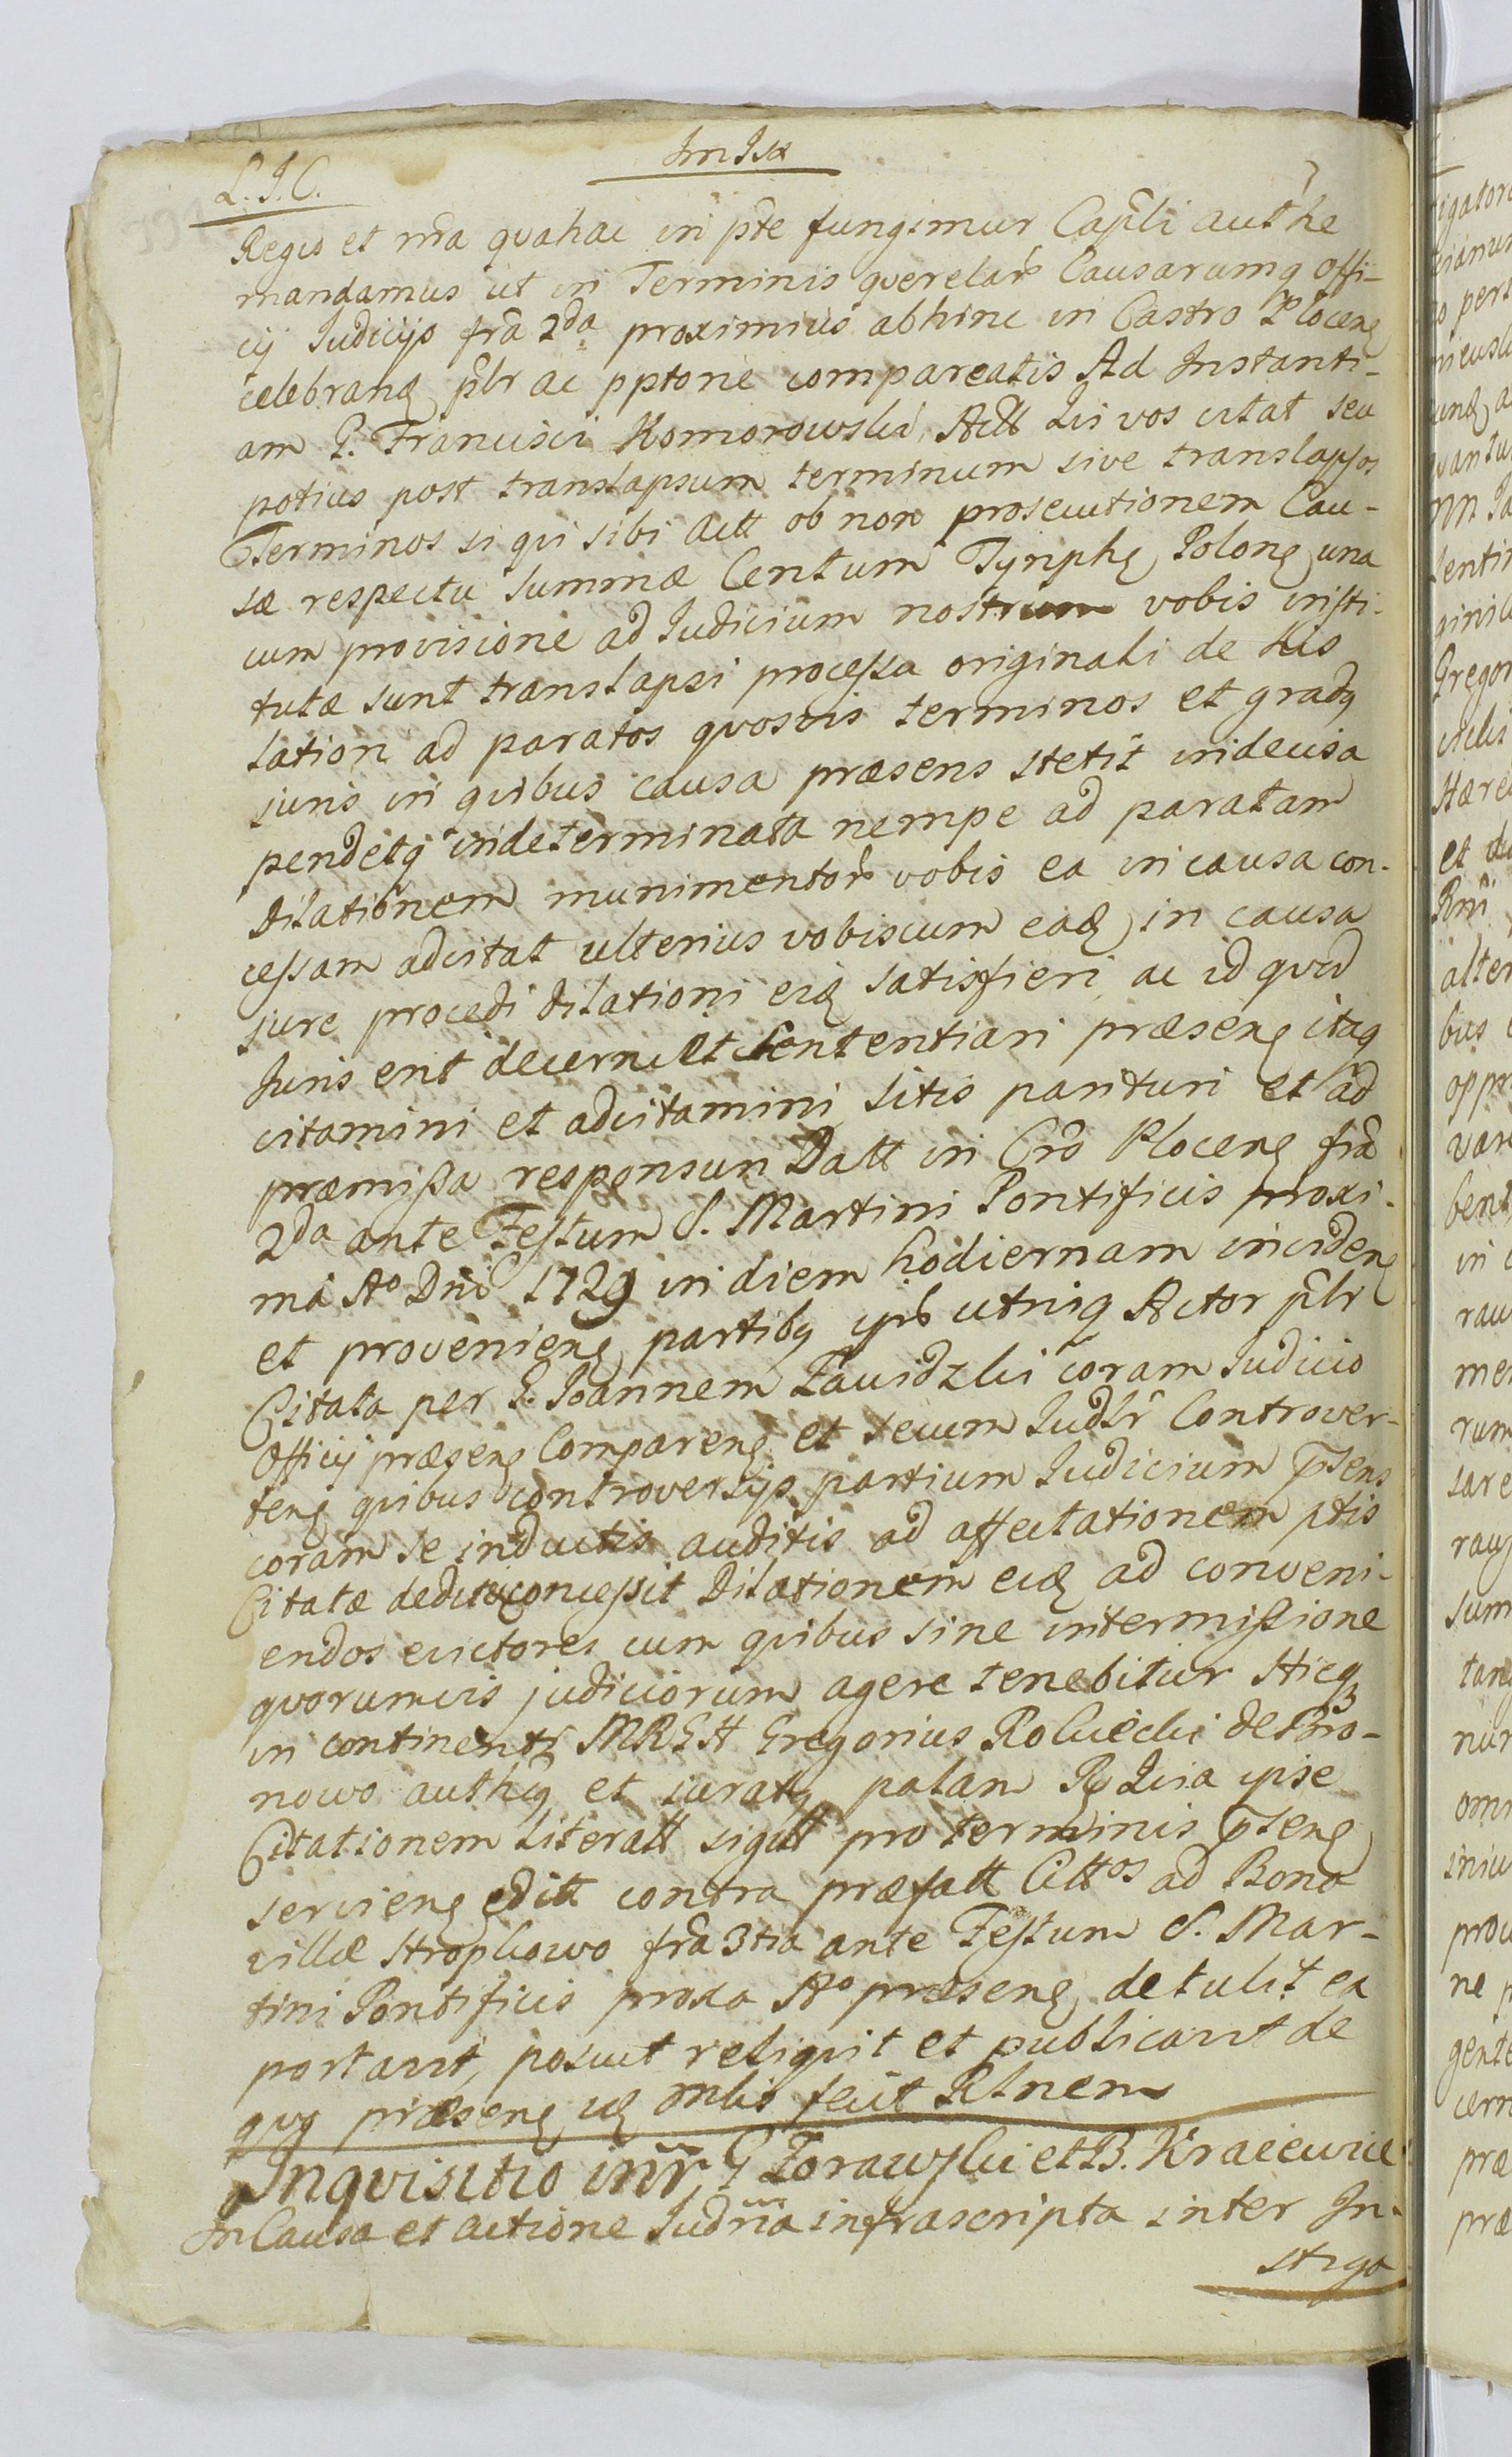 L. I. C.
Regis et nra qua hac in pte fungimur Capli authe
mandamus ut in Terminis querelar Causarumq Offi-
cij Judicijs fra 2da proximius abhinc in Castro Plocen
celebran plr ac pptorie compareatis Ad Instanti-
am G. Francisci Komorowski Actt Qui vos citat seu
potius post translapsum terminum sive translapsos
Terminos si qui sibi Actt ob non prosecutionem Cau-
sæ respectu Summæ Centum Tynph Polon una
cum provisione ad Judicium nostrum vobis insti-
tutæ sunt translapsi processu originali de
lation ad paratos quosvis terminos et grad
juris in quibus causa præsens stetit indecisa
pendetq indeterminata nempe ad paratam
Dilationem munimentor vobis ea in causa con-
cessam adcitat ulterius vobiscum ead in causa
jure procedi dilationi eid satisfieri ac id quid
Juris erit decerni et Sententiari præsen itaq
citamini et adcitamini sitis parituri et ad
præmissa responsuri Datt in Cro Plocen fra
2da ante Festum S. Martini Pontificis proxi-
ma Ao Dni 1729 in diem hodiernam inciden
et provenien partib ipis utriq Actor plr
Citata per G. Joannem Zawidzki coram Judicio
Officij præsen Comparen et secum Judlr Controver-
ten quibus controversijs partium Judicium psens
coram se inductis auditis ad affectationem ptis
Citatæ dedit concessit Dilationem eid ad conveni-
endos evictores cum quibus sine intermissione
quorumvis judiciorum agere tenebitur Hicq
in continenti MRGH Gregorius Rokicki de Pro-
nowo authen et jurat palam R Qvia ipse
Citationem literatt sigill pro terminis psen
servien editt contra præfatt Cittos ad Bona
villæ Stropkowo fra 3tia ante Festum S. Mar-
tini Pontificis proxa Ao præsen detulit ea
portavit, posuit reliquit et publicavit de
quo præsen fecit Rlnem
Inquisitio intr G Zorawski et B. Kraiewice
In Causa et actione Judria infrascripta inter In-
stiga